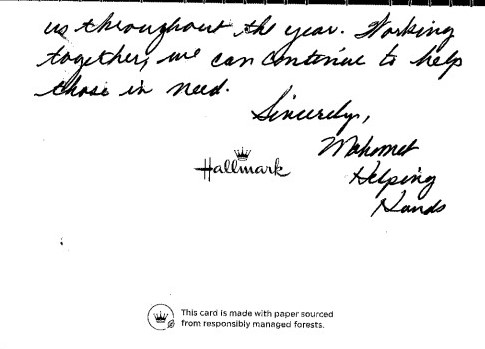 us throughout the year. Working
together, we can continue to help
those in need.
Sincerely,
Mahomet
Helping
Hands
Hallmark
This card is made with paper sourced
from responsibly managed forests.